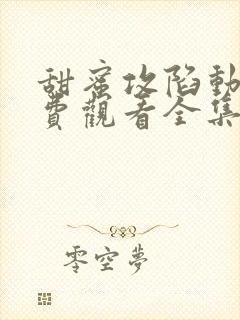 甜蜜攻陷動
費觀看全集
零空夢